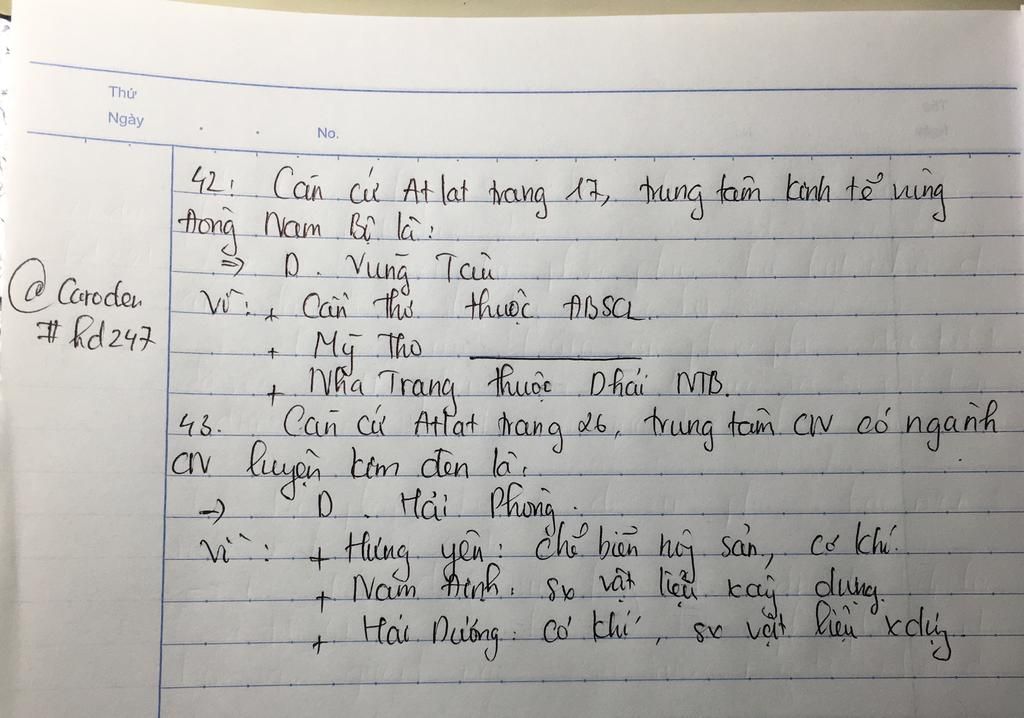 Thứ
Ngày
No.
42: Căn cứ Atlat trang 17, trung tâm kinh tế vùng
Đông Nam Bộ là:
=> D. Vũng Tàu
Vì: + Cần Thơ thuộc ĐBSCL.
+ Mỹ Tho ___
+ Nha Trang thuộc Dhải NTB.
43. Căn cứ Atlat trang 26, trung tâm CN có ngành
CN luyện kim đen là:
→ D. Hải Phòng.
Vì: + Hưng yên: chế biến nông sản, cơ khí.
+ Nam Định: sx vật liệu xây dựng.
+ Hải Dương: cơ khí, sx vật liệu xdựg
@Caroden
#hd247